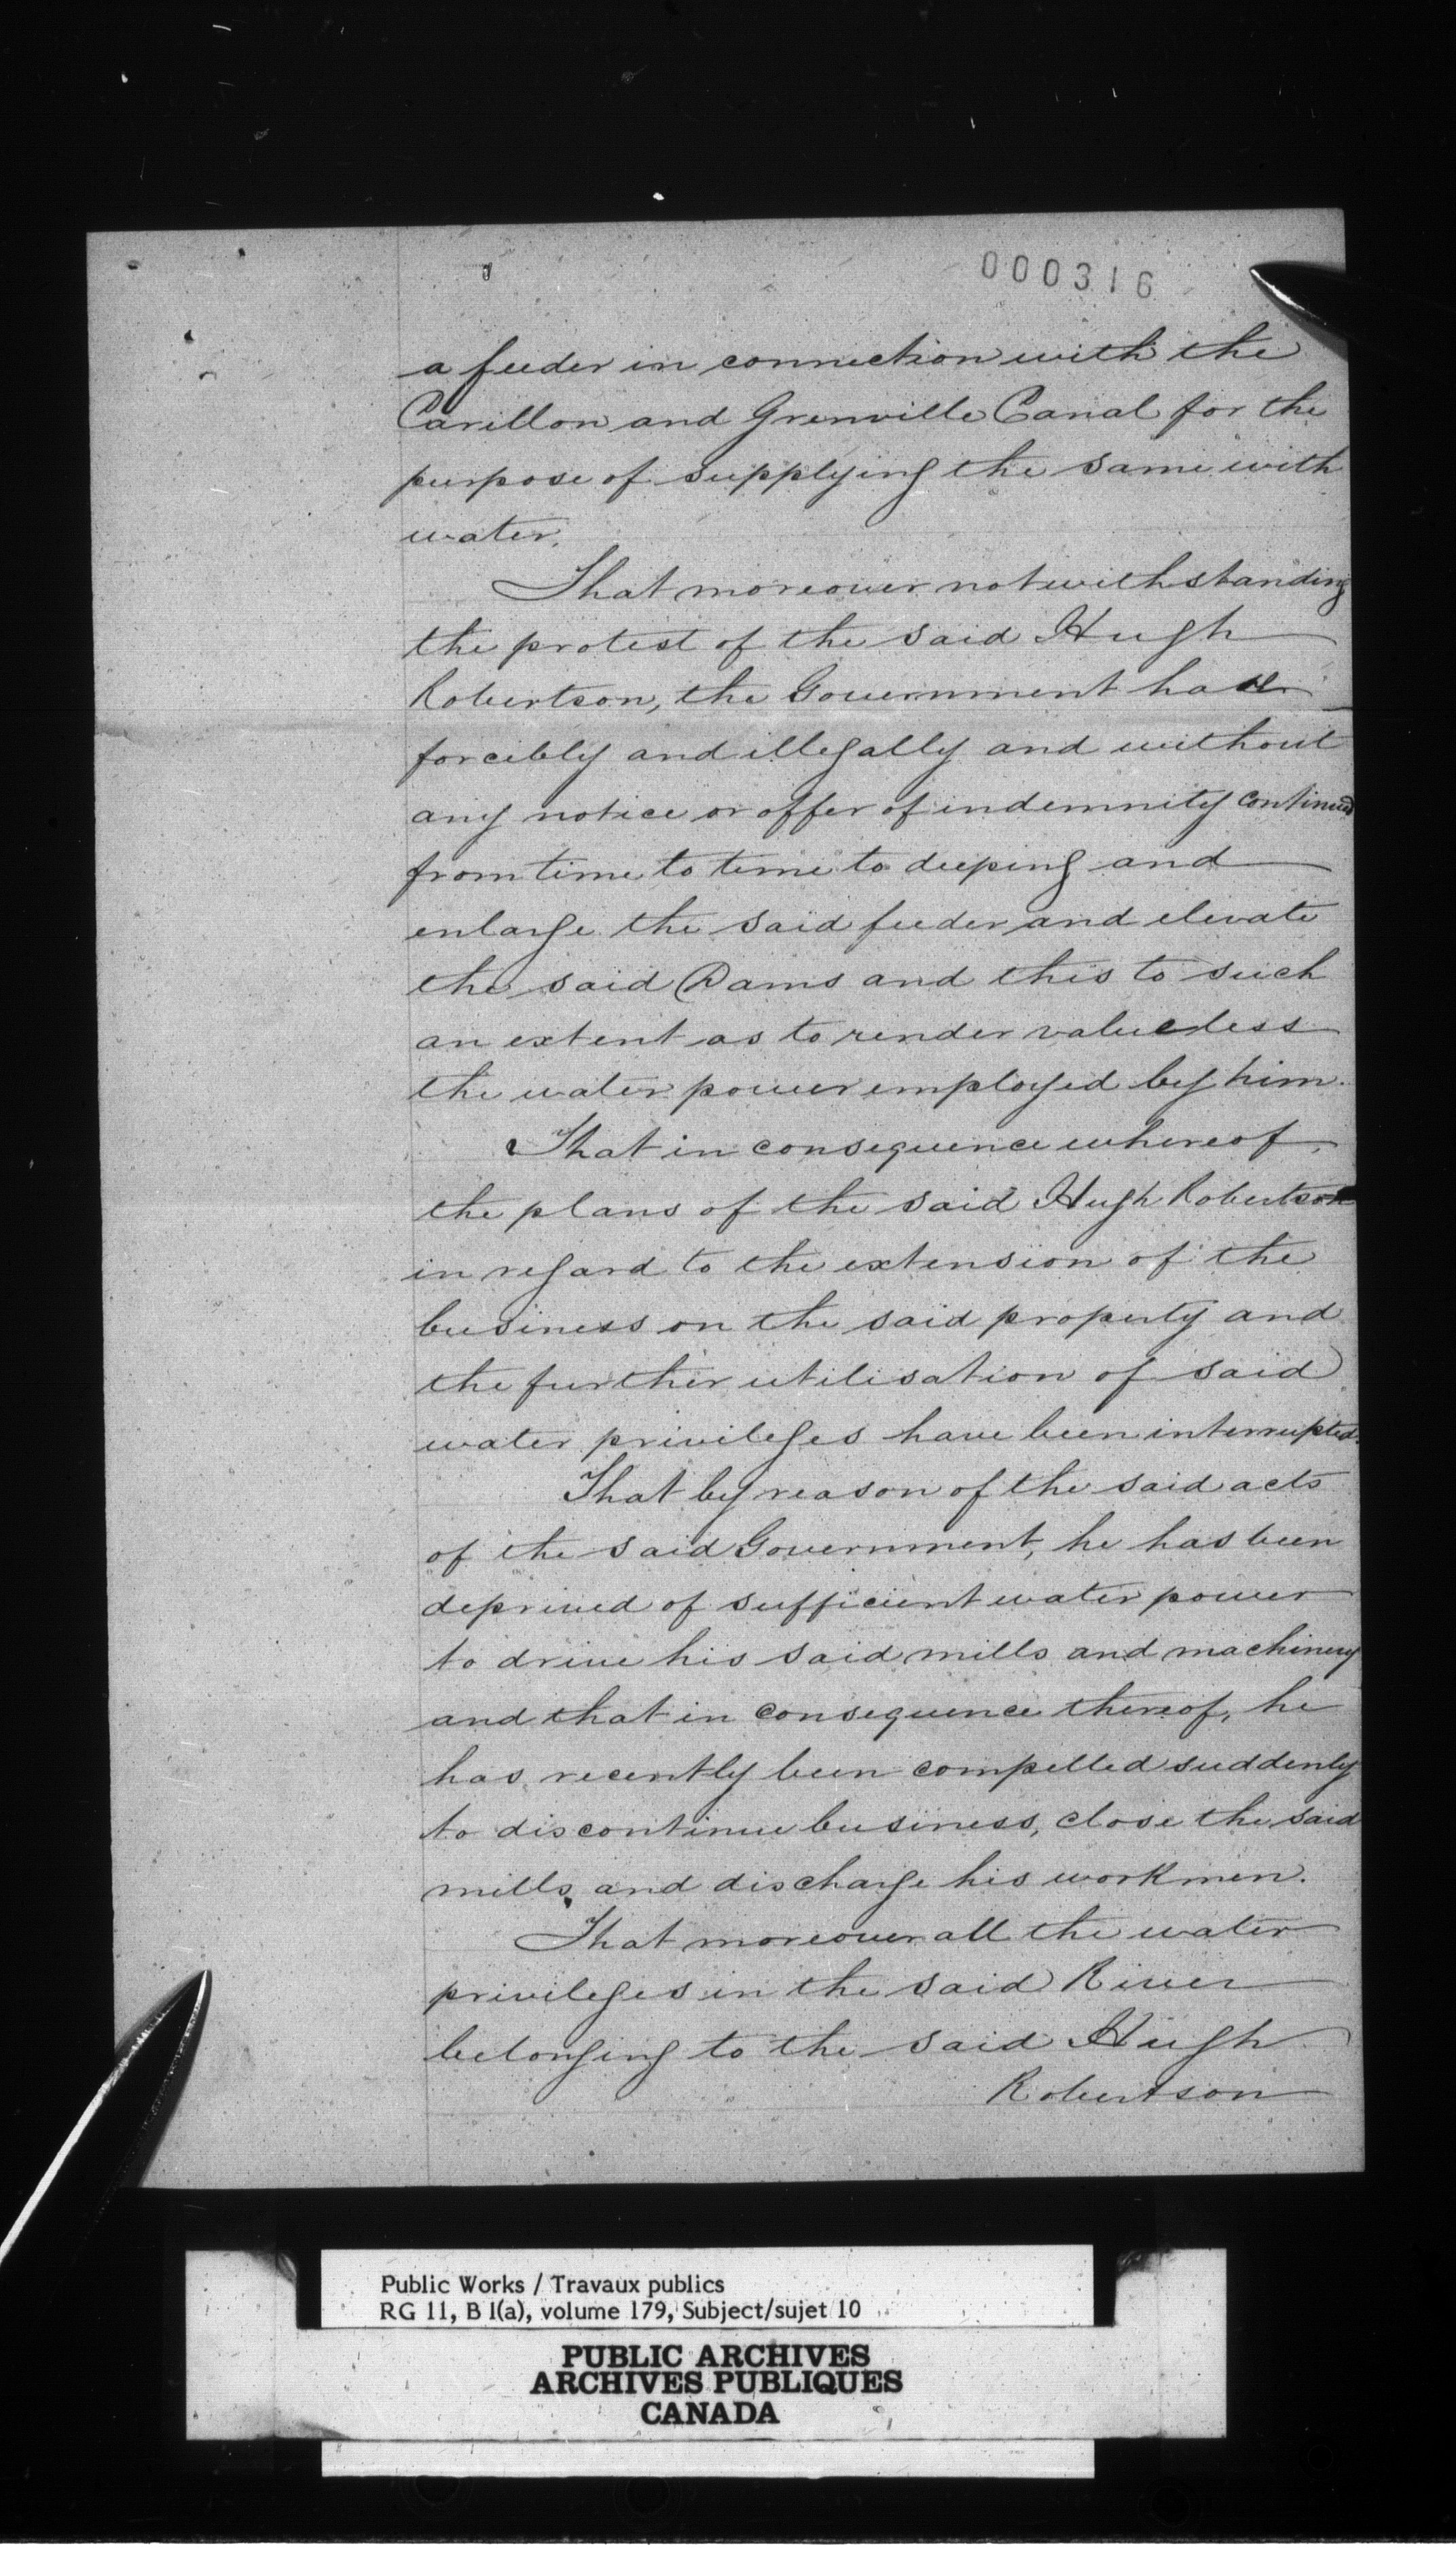 000316
a feeder in connection with the
Carillon and Grenville Canal for the
purpose of supplying the same with
water.
That moreover notwithstanding
the protest of the said Hugh
Robertson, the Government have
forcibly and illegally and without
any notice or offer of indemnity continued
from time to time to deeping and
enlarge the said feeder and elevate
the said Dams and this to such
an extent as to render valueless
the water power employed by him.
That in consequence whereof,
the plans of the said Hugh Robertson
in regard to the extension of the
business on the said property and
the further utilisation of said
water privileges have been interrupted.
That by reason of the said acts
of the said Government, he has been
deprived of sufficient water power
to drive his said mills and machinery
and that in consequence thereof, he
has recently been compelled suddenly
to discontinue business, close the said
mills, and discharge his workmen.
That moreover all the water
privileges in the said River
belonging to the said Hugh
Robertson
Public Works / Travaux publics
RG 11, B 1(a), volume 179, Subject/sujet 10
PUBLIC ARCHIVES
ARCHIVES PUBLIQUES
CANADA